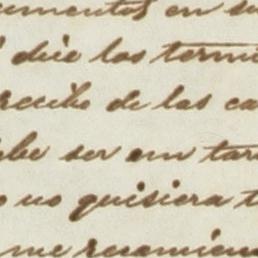 cumentos en su
dice los termi
recibo de las ca
ebe ser un tar
o no quisiera t
me recomien